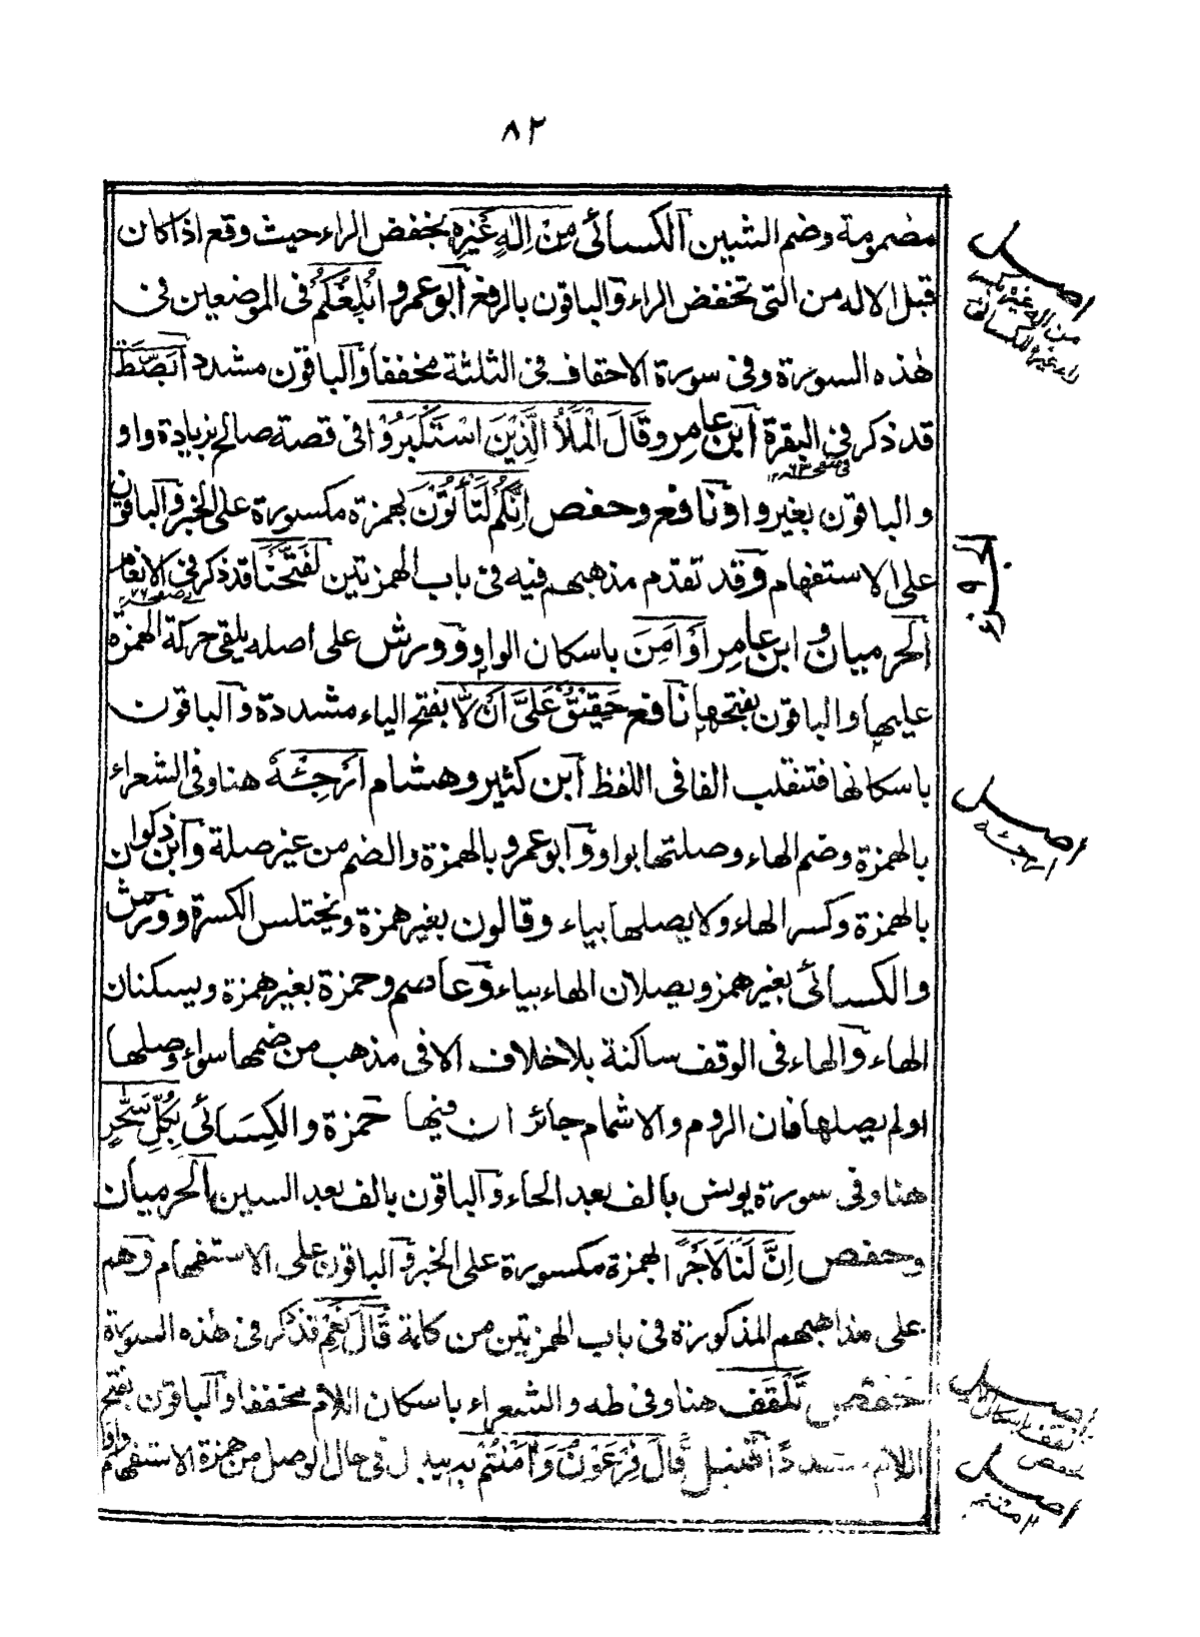 ٨٢
مضمومة وضم الشين الكسائى مِنْ اِلٰهٍ غَيْرِهٖ بخفض الراء حيث وقع اذا كان
قبل الاله من التى تخفض الراء والباقون بالرفع ابو عمرو اُبْلِغُكُمْ فى الموضعين فى
هٰذه السورة وفى سورة الاحقاف فى الثلثة مخففا والباقون مشدد ابَصْطَةً
قد ذكر فى البقرة ابن عامر وقَالَ الْمَلَأُ الَّذِيْنَ اسْتَكْبَرُوْا فى قصة صالح بزيادة واو
والباقون بغير واو نافع وحفص اِنَّكُمْ لَتَأْتُوْنَ بهمزة مكسورة على الخبر والباقون
على الاستفهام وقد تقدم مذهبهم فيه فى باب الهمزتين لَفَتَحْنَا قد ذكر فى الانعام
الحرميان وابن عامر اَوْ اَمِنَ باسكان الواو وورش على اصله يلقى حركة الهمزة
عليها والباقون بفتحها نافع حَقِيْقٌ عَلَىَّ اَنْ لَّا بفتح الياء مشددة والباقون
باسكانها فتنقلب الفا فى اللفظ ابن كثير وهشام اَرْجِئْهُ هنا وفى الشعراء
بالهمزة وضم الهاء وصلتها بواو وابو عمرو بالهمزة والضم من غير صلة وابن ذكوان
بالهمزة وكسر الهاء ولا يصلها بياء وقالون بغير همزة ويختلس الكسرة وورش
والكسائى بغير همز ويصلان الهاء بياء وعاصم وحمزة بغير همزة ويسكنان
الهاء والهاء فى الوقف ساكنة بلا خلاف الا فى مذهب من ضمها سواء وصلها
اولم يصلها فان الروم والاشمام جائز ان فيها حمزة والكِسَائى بِكُلِّ سَحَّارٍ
هنا وفى سورة يونس بالف بعد الحاء والباقون بالف بعد السين الحرميان
وحفص اِنَّ لَنَا لَاَجْرًا بهمزة مكسورة على الخبر والباقون على الاستفهام وهم
على مذاهبهم المذكورة فى باب الهمزتين من كلمة قَالَ نَعَمْ قد ذكر فى هٰذه السورة
حفص تَلْقَفُ هنا وفى طه والشعراء باسكان اللام مخففا والباقون بفتح
اللام مشددا قنبل قَالَ فِرْعَوْنُ وَاٰمَنْتُمْ به يبدل فى حال الوصل من همزة الاستفهام واوا
اصل
من اله غيره
اصل
ارجئه
اصل
اصل